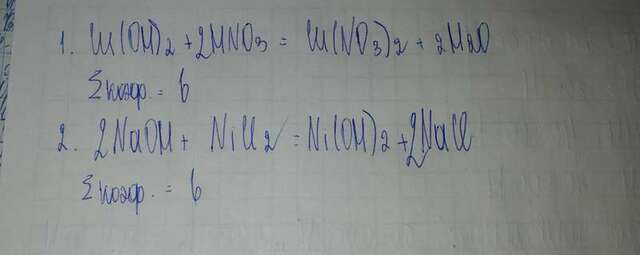 1. Cu(OH)2 + 2HNO3 = Cu(NO3)2 + 2H2O
Σкоэф. = 6
2. 2NaOH + NiCl2 = Ni(OH)2 + 2NaCl
Σкоэф. = 6